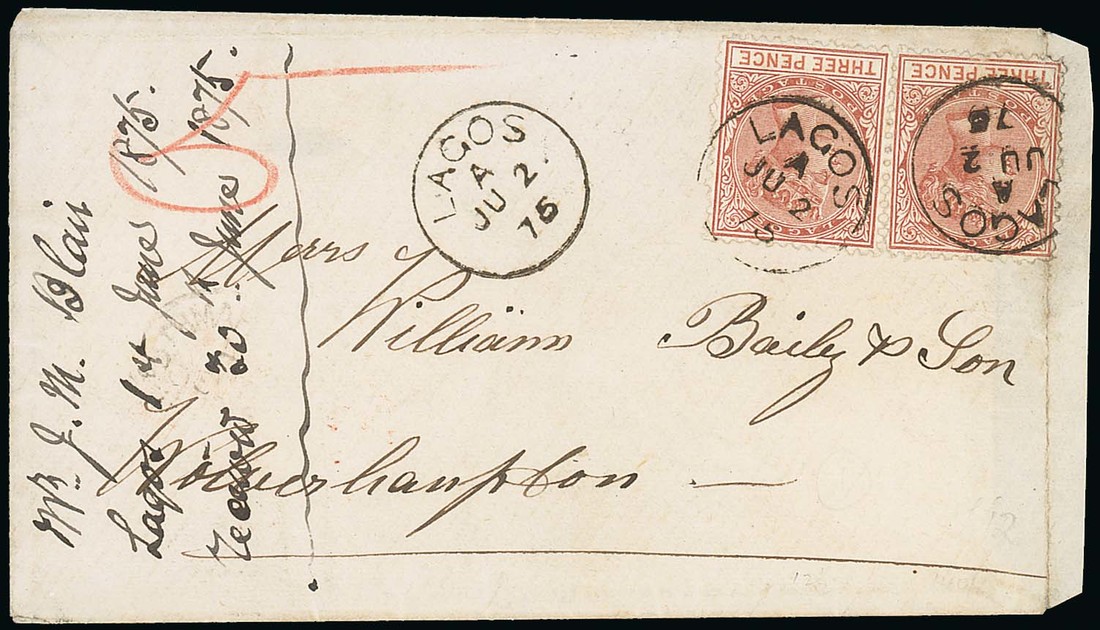 THREE PENCE
POSTAGE
LAG
THREE PENCE
POSTAGE
LAGOS
LAGOS
A
JU 2
75
LAGOS
A
JU 2
75
LAGOS
A
JU 2
75
Messrs
William Bailey & Son
Wolverhampton —
Mr J. M. Blair
Lagos 1st June 1875.
received 30th June 1875.